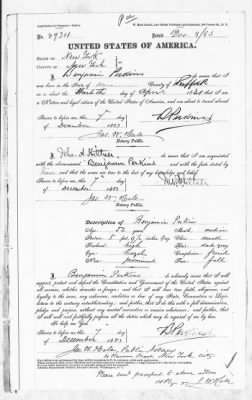 No. 29314 Issued Dec. 8/83
UNITED STATES OF AMERICA.
STATE OF New York
COUNTY OF New York
I, Benjamin Perkins do swear that I
was born in the State of County of Suffolk
on the day of April 1831 that I am
a Native and loyal citizen of the United States of America, and am about to travel abroad
Sworn to before me, this 7 day B Perkins
of December 1883
Jas. W. Hale
Notary Public.
I, John A. do swear that I am acquainted
with the above-named Benjamin Perkins and with the facts stated by
him and that the same are true to the best of my knowledge and belief.
Sworn to before me, this 7 day
of December 1883
Jas. W. Hale
Notary Public.
Description of Benjamin Perkins
Age: 52 years Mouth: medium
Stature: 5 feet inches, Eng. Chin: small
Forehead: high Hair: dark gray
Eyes: hazel Complexion: fresh
Nose: prominent Face: full
I, Benjamin Perkins do solemnly swear that I will
support, protect and defend the Constitution and Government of the United States against
all enemies, whether domestic or foreign; and that I will bear true faith, allegiance, and
loyalty to the same, any ordinance, resolution or law of any State, Convention or Legis-
lature to the contrary notwithstanding; and further, that I do this with a full determination,
pledge and purpose, without any mental reservation or evasion whatsoever; and further, that
I will well and faithfully perform all the duties which may be required of me by law.
So help me God.
Sworn to before me, this 7 day B Perkins
of December 1883
Jas. W. Hale, Public Notary
New York city.
Please send passport to above address
J. W. Hale